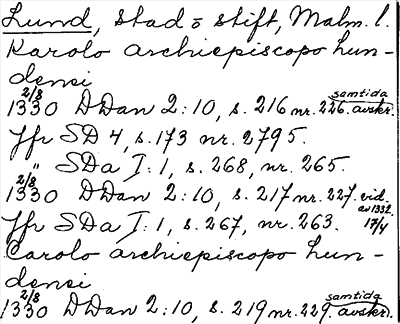 Lund, stad o stift, Malm. l.
Karolo archiepiscopo lun-
densi
2/8 1330 DDan 2:10, s. 216 nr. 226. samtida avskr.
Jfr SD 4, s. 173 nr. 2795.
" SDa I:1, s. 268, nr. 265.
2/8 1330 DDan 2:10, s. 217 nr. 227. vid. av 1332 17/4
Jfr SDa I:1, s. 267, nr. 263.
Carolo archiepiscopo lun-
densi
2/8 1330 DDan 2:10, s. 219 nr. 229. samtida avskr.